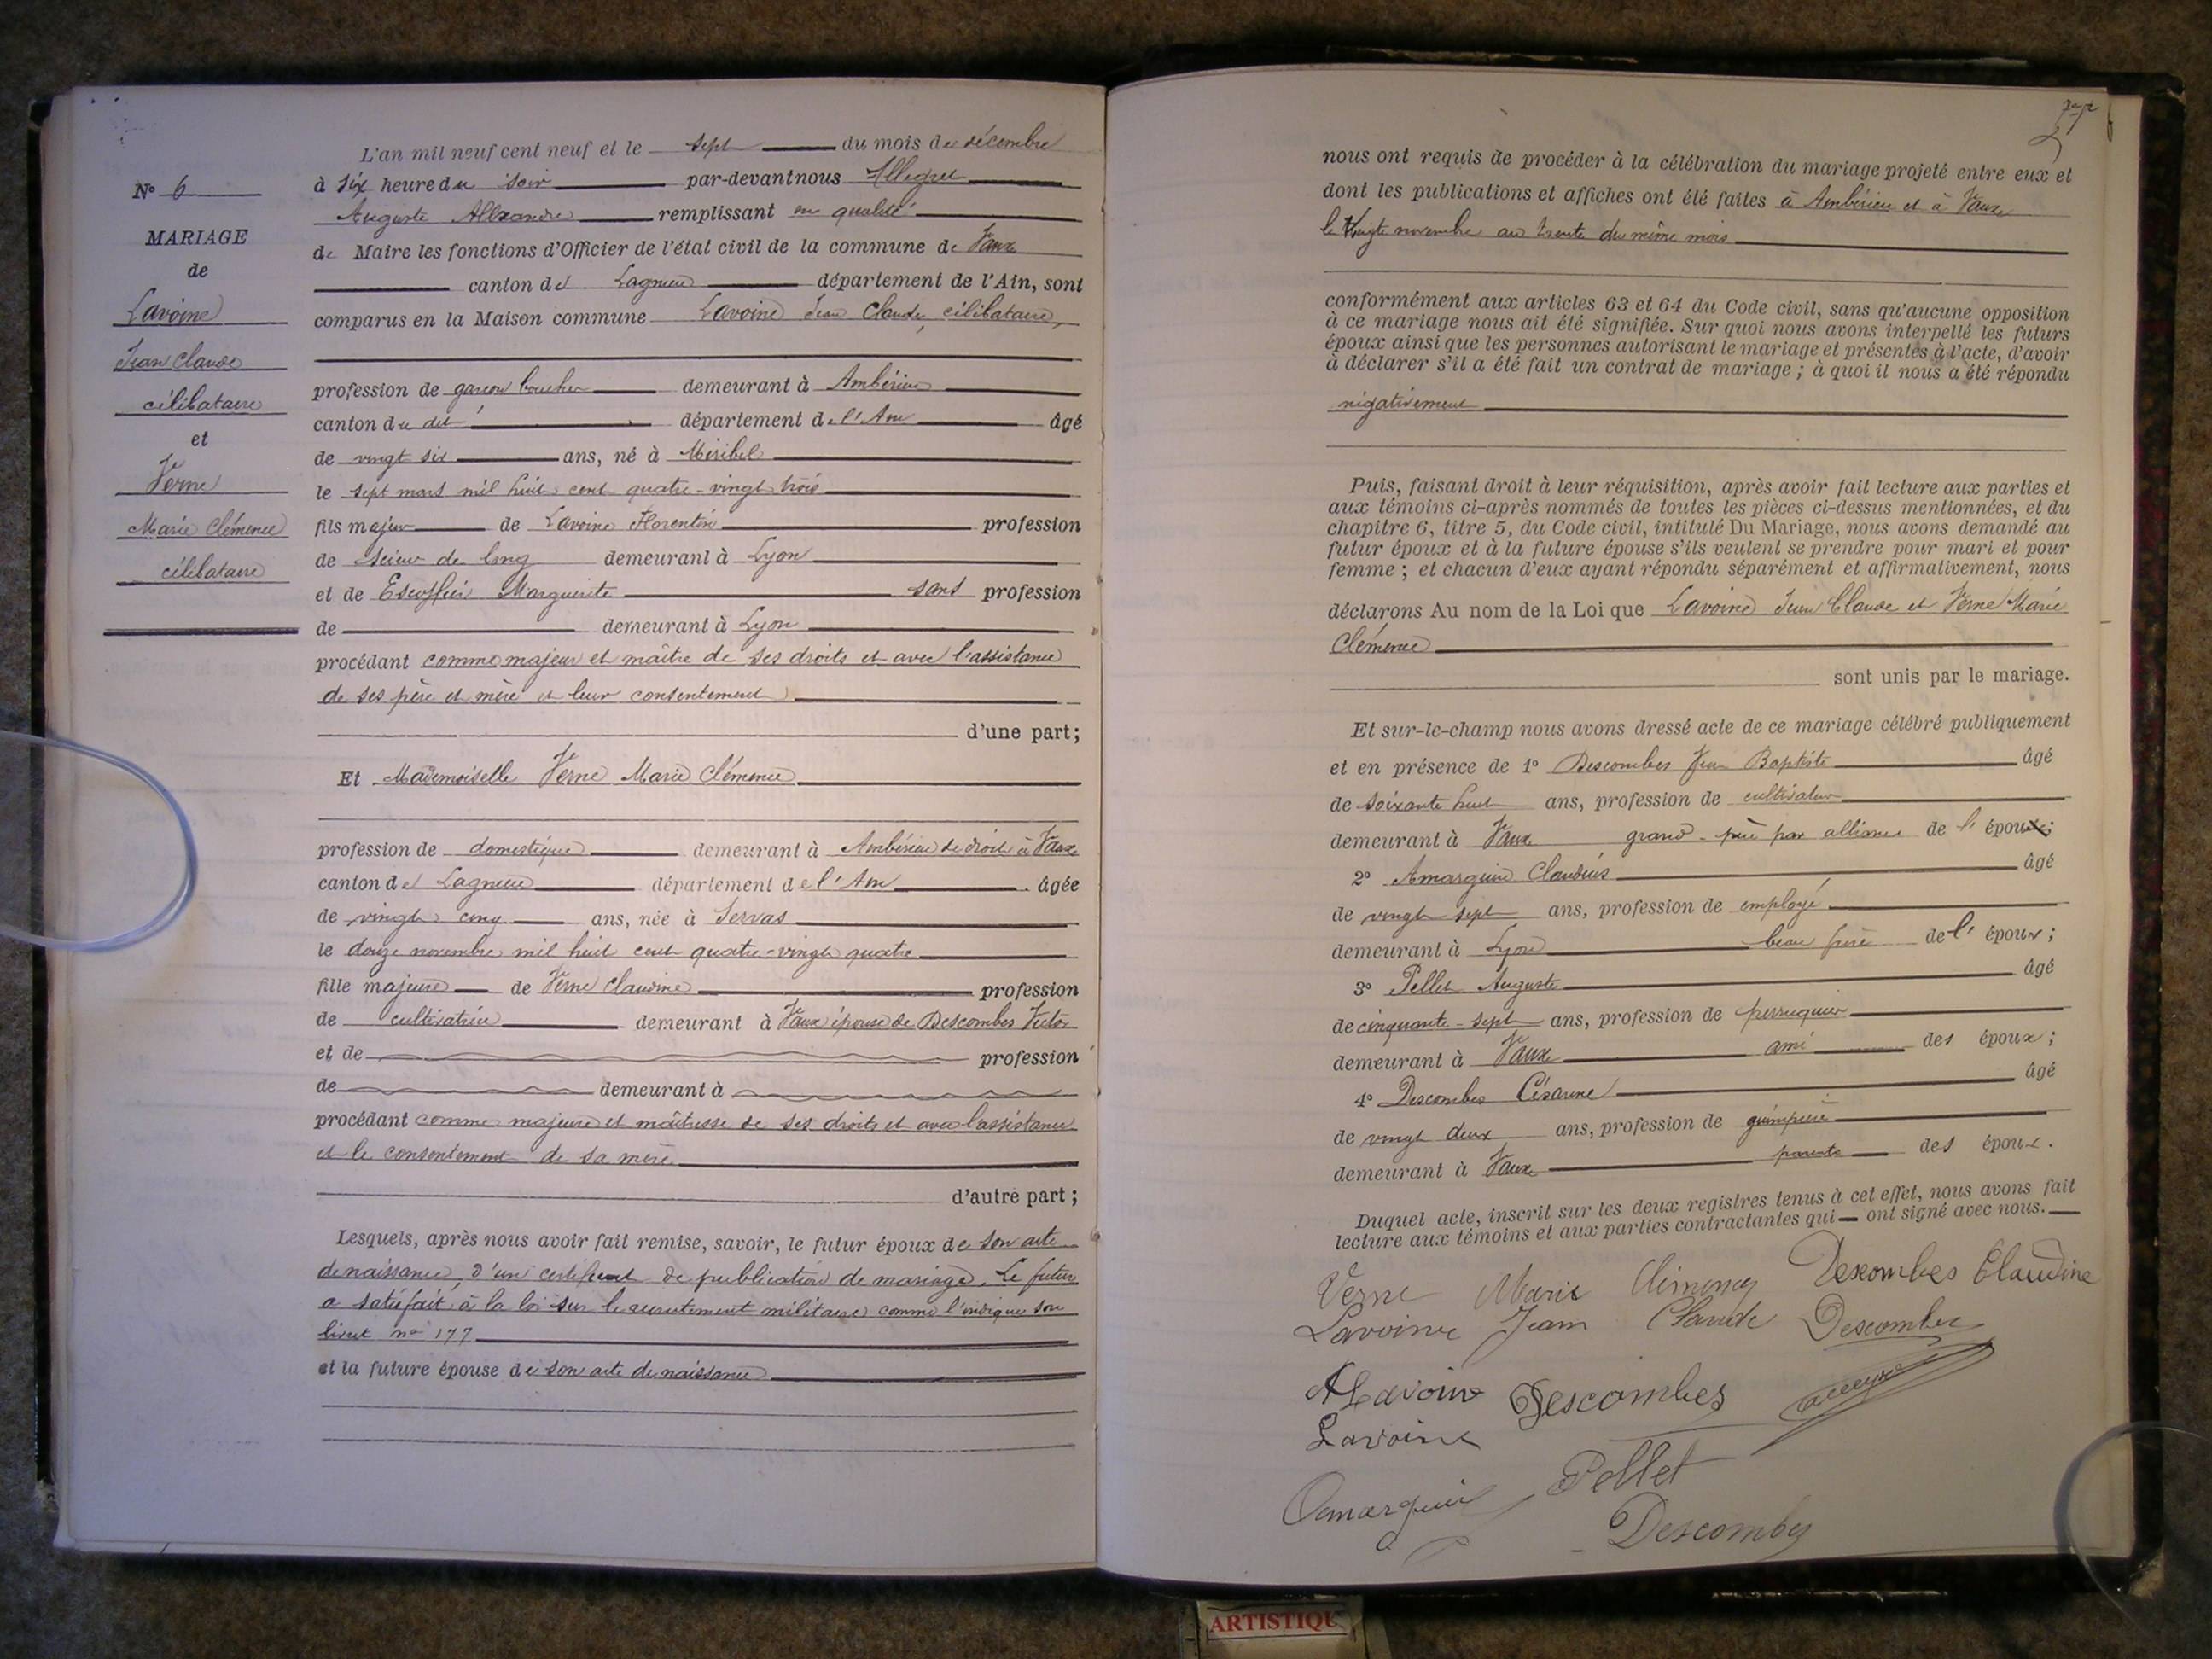 N° 6
MARIAGE
de
Lavoine
Jean Claude
célibataire
et
Verne
Marie Clémence
célibataire
L'an mil neuf cent neuf et le sept du mois de décembre
à six heure du soir par-devant nous Allegret
Auguste Alexandre remplissant en qualité
de Maire les fonctions d'Officier de l'état civil de la commune de Vaux
canton de Lagnieu département de l'Ain, sont
comparus en la Maison commune Lavoine Jean Claude, célibataire,
profession de garçon boucher demeurant à Ambérieu
canton du dit département de l'Ain âgé
de vingt six ans, né à Miribel
le sept mars mil huit cent quatre-vingt trois
fils majeur de Lavoine Florentin profession
de scieur de long demeurant à Lyon
et de Escoffier Marguerite sans profession
de demeurant à Lyon
procédant comme majeur et maître de ses droits et avec l'assistance
de ses père et mère et leur consentement
d'une part;
Et Mademoiselle Verne Marie Clémence
profession de domestique demeurant à Ambérieu de droit à Vaux
canton de Lagnieu département de l'Ain âgée
de vingt cinq ans, née à Servas
le douze novembre mil huit cent quatre-vingt quatre
fille majeure de Verne Claudine profession
de cultivatrice demeurant à Vaux épouse de Descombes Victor
et de profession
de demeurant à
procédant comme majeure et maîtresse de ses droits et avec l'assistance
et le consentement de sa mère
d'autre part;
Lesquels, après nous avoir fait remise, savoir, le futur époux de son acte
de naissance, d'un certificat de publication de mariage. Le futur
a satisfait à la loi sur le recrutement militaire comme l'indique son
livret n° 177
et la future épouse de son acte de naissance
nous ont requis de procéder à la célébration du mariage projeté entre eux et
dont les publications et affiches ont été faites à Ambérieu et à Vaux
le vingt novembre au trente du même mois
conformément aux articles 63 et 64 du Code civil, sans qu'aucune opposition
à ce mariage nous ait été signifiée. Sur quoi nous avons interpellé les futurs
époux ainsi que les personnes autorisant le mariage et présentes à l'acte, d'avoir
à déclarer s'il a été fait un contrat de mariage; à quoi il nous a été répondu
négativement
Puis, faisant droit à leur réquisition, après avoir fait lecture aux parties et
aux témoins ci-après nommés de toutes les pièces ci-dessus mentionnées, et du
chapitre 6, titre 5, du Code civil, intitulé Du Mariage, nous avons demandé au
futur époux et à la future épouse s'ils veulent se prendre pour mari et pour
femme; et chacun d'eux ayant répondu séparément et affirmativement, nous
déclarons Au nom de la Loi que Lavoine Jean Claude et Verne Marie
Clémence
sont unis par le mariage.
Et sur-le-champ nous avons dressé acte de ce mariage célébré publiquement
et en présence de 1° Descombes Jean Baptiste âgé
de soixante huit ans, profession de cultivateur
demeurant à Vaux grand-père par alliance de l'époux;
2° Amarguin Claudius âgé
de vingt sept ans, profession de employé
demeurant à Lyon beau frère de l'époux;
3° Pellet Auguste âgé
de cinquante-sept ans, profession de perruquier
demeurant à Vaux ami des époux;
4° Descombes Césarine âgé
de vingt deux ans, profession de guimpière
demeurant à Vaux parente des époux.
Duquel acte, inscrit sur les deux registres tenus à cet effet, nous avons fait
lecture aux témoins et aux parties contractantes qui ont signé avec nous.
Verne Marie Clémence Descombes Claudine
Lavoine Jean Claude Descombes
A Lavoine Descombes
Lavoine
Amarguin Pellet
Descombes
ARTISTIQU